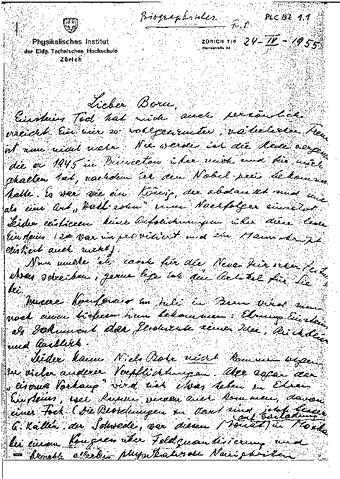 Biographisches
PLC Bi 1.1
Physikalisches Institut
der Eidg. Technischen Hochschule
Zürich
ZÜRICH 7/6
24-IV-1955
Lieber Born,
Einsteins Tod hat mich auch persönlich
erreicht. Ein mir so wohlgesinnter, väterlicher Freund
ist nun nicht mehr. Nie werde ich die Rede vergessen,
die er 1945 in Princeton über mich und für mich
gehalten hat, nachdem ich den Nobel-preis bekommen
hatte. Es war wie ein König, der abdankt und mich
als eine Art „Wahl-Sohn“ zum Nachfolger einsetzt.
Leider existieren keine Aufzeichnungen über diese Rede
Einsteins (sie war improvisiert und ein Manuskript
existiert auch nicht)
Nun mußte ich rasch für die Neue Zürcher Zeitung
etwas schreiben, gerne lege ich den Artikel für Sie
bei.
Unsere Konferenz im Juli in Bern wird nun
noch einen tieferen Sinn bekommen: Ehrung Einsteins
als Dokument der Geschichte seiner Idee, Rückblick
und Ausblick.
Leider kann Niels Bohr nicht kommen wegen
zu vieler anderer Verpflichtungen. Aber sogar der
"eiserne Vorhang" wird sich etwas heben zu Ehren
Einsteins,
einer Fock. (Die Beziehungen zu dort sind
G. Källén, der Schwede, war diesen Monat in Moskau
bei einem Kongress über Feldquantisierung und
physikalische Neuigkeiten